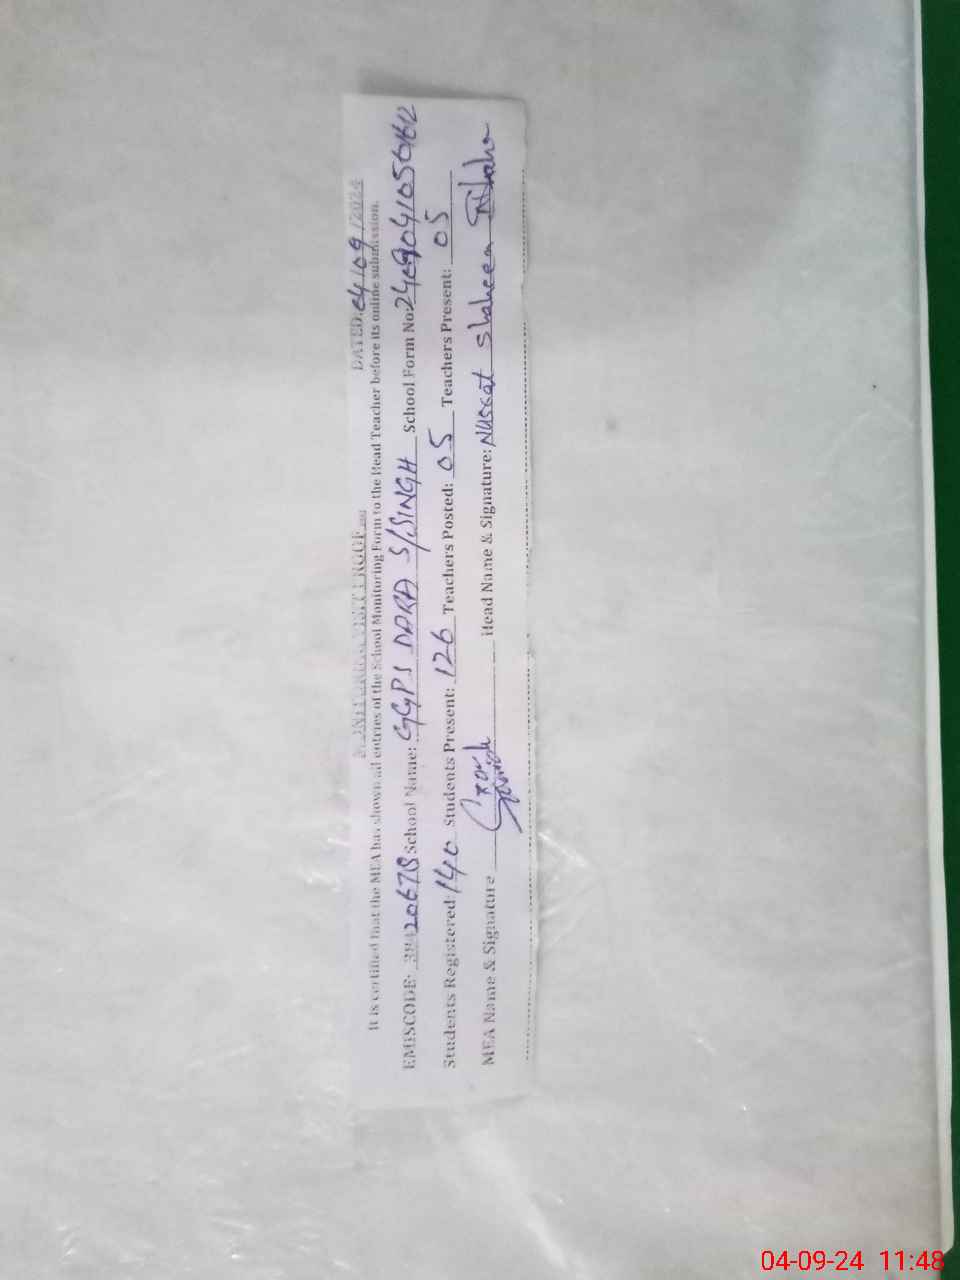 MONITORING VISIT PROOF DATED: 04/09/2024
It is certified that the MEA has shown all entries of the School Monitoring Form to the Head Teacher before its online submission.
EMISCODE: 38420678 School Name: GGPS DARA S/SINGH School Form No:
Students Registered: 140 Students Present: 126 Teachers Posted: 05 Teachers Present: 05
MEA Name & Signature Head Name & Signature: Nusrat shaheen
04-09-24 11:48